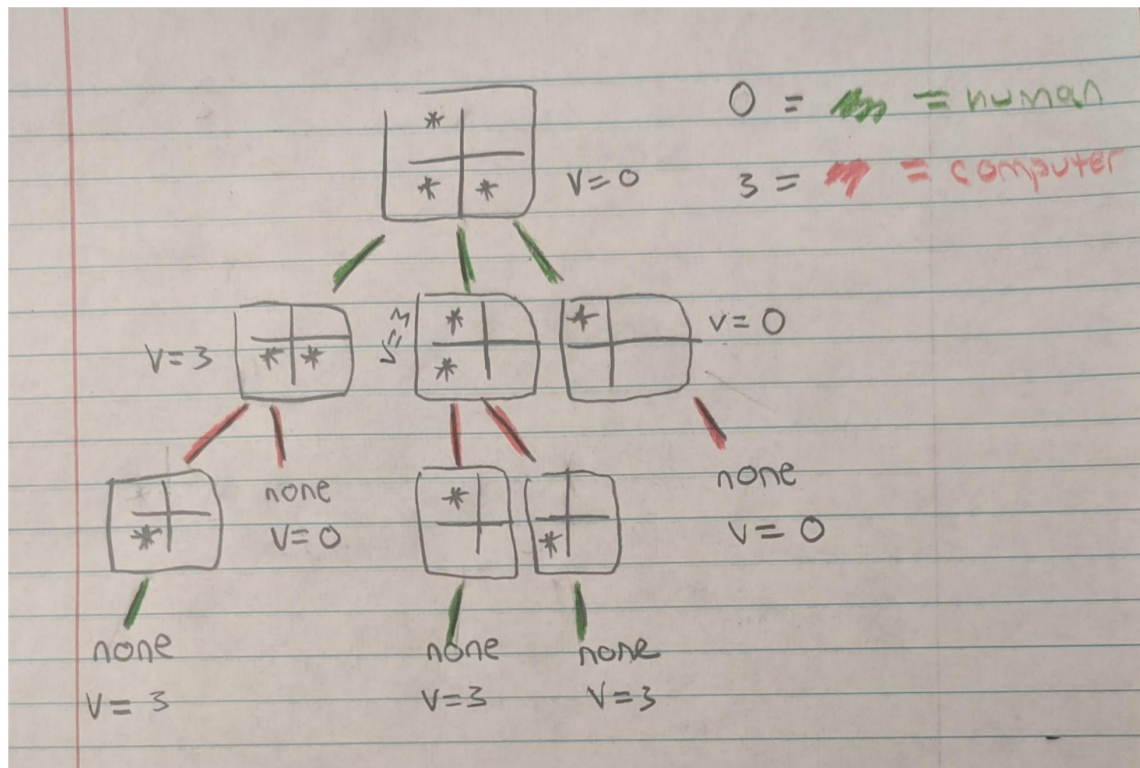 0 = = human
*
3 = = computer
* *
V=0
V=3
* *
V=3
*
*
*
V=0
*
none
V=0
*
*
none
V=0
none
V=3
none
V=3
none
V=3